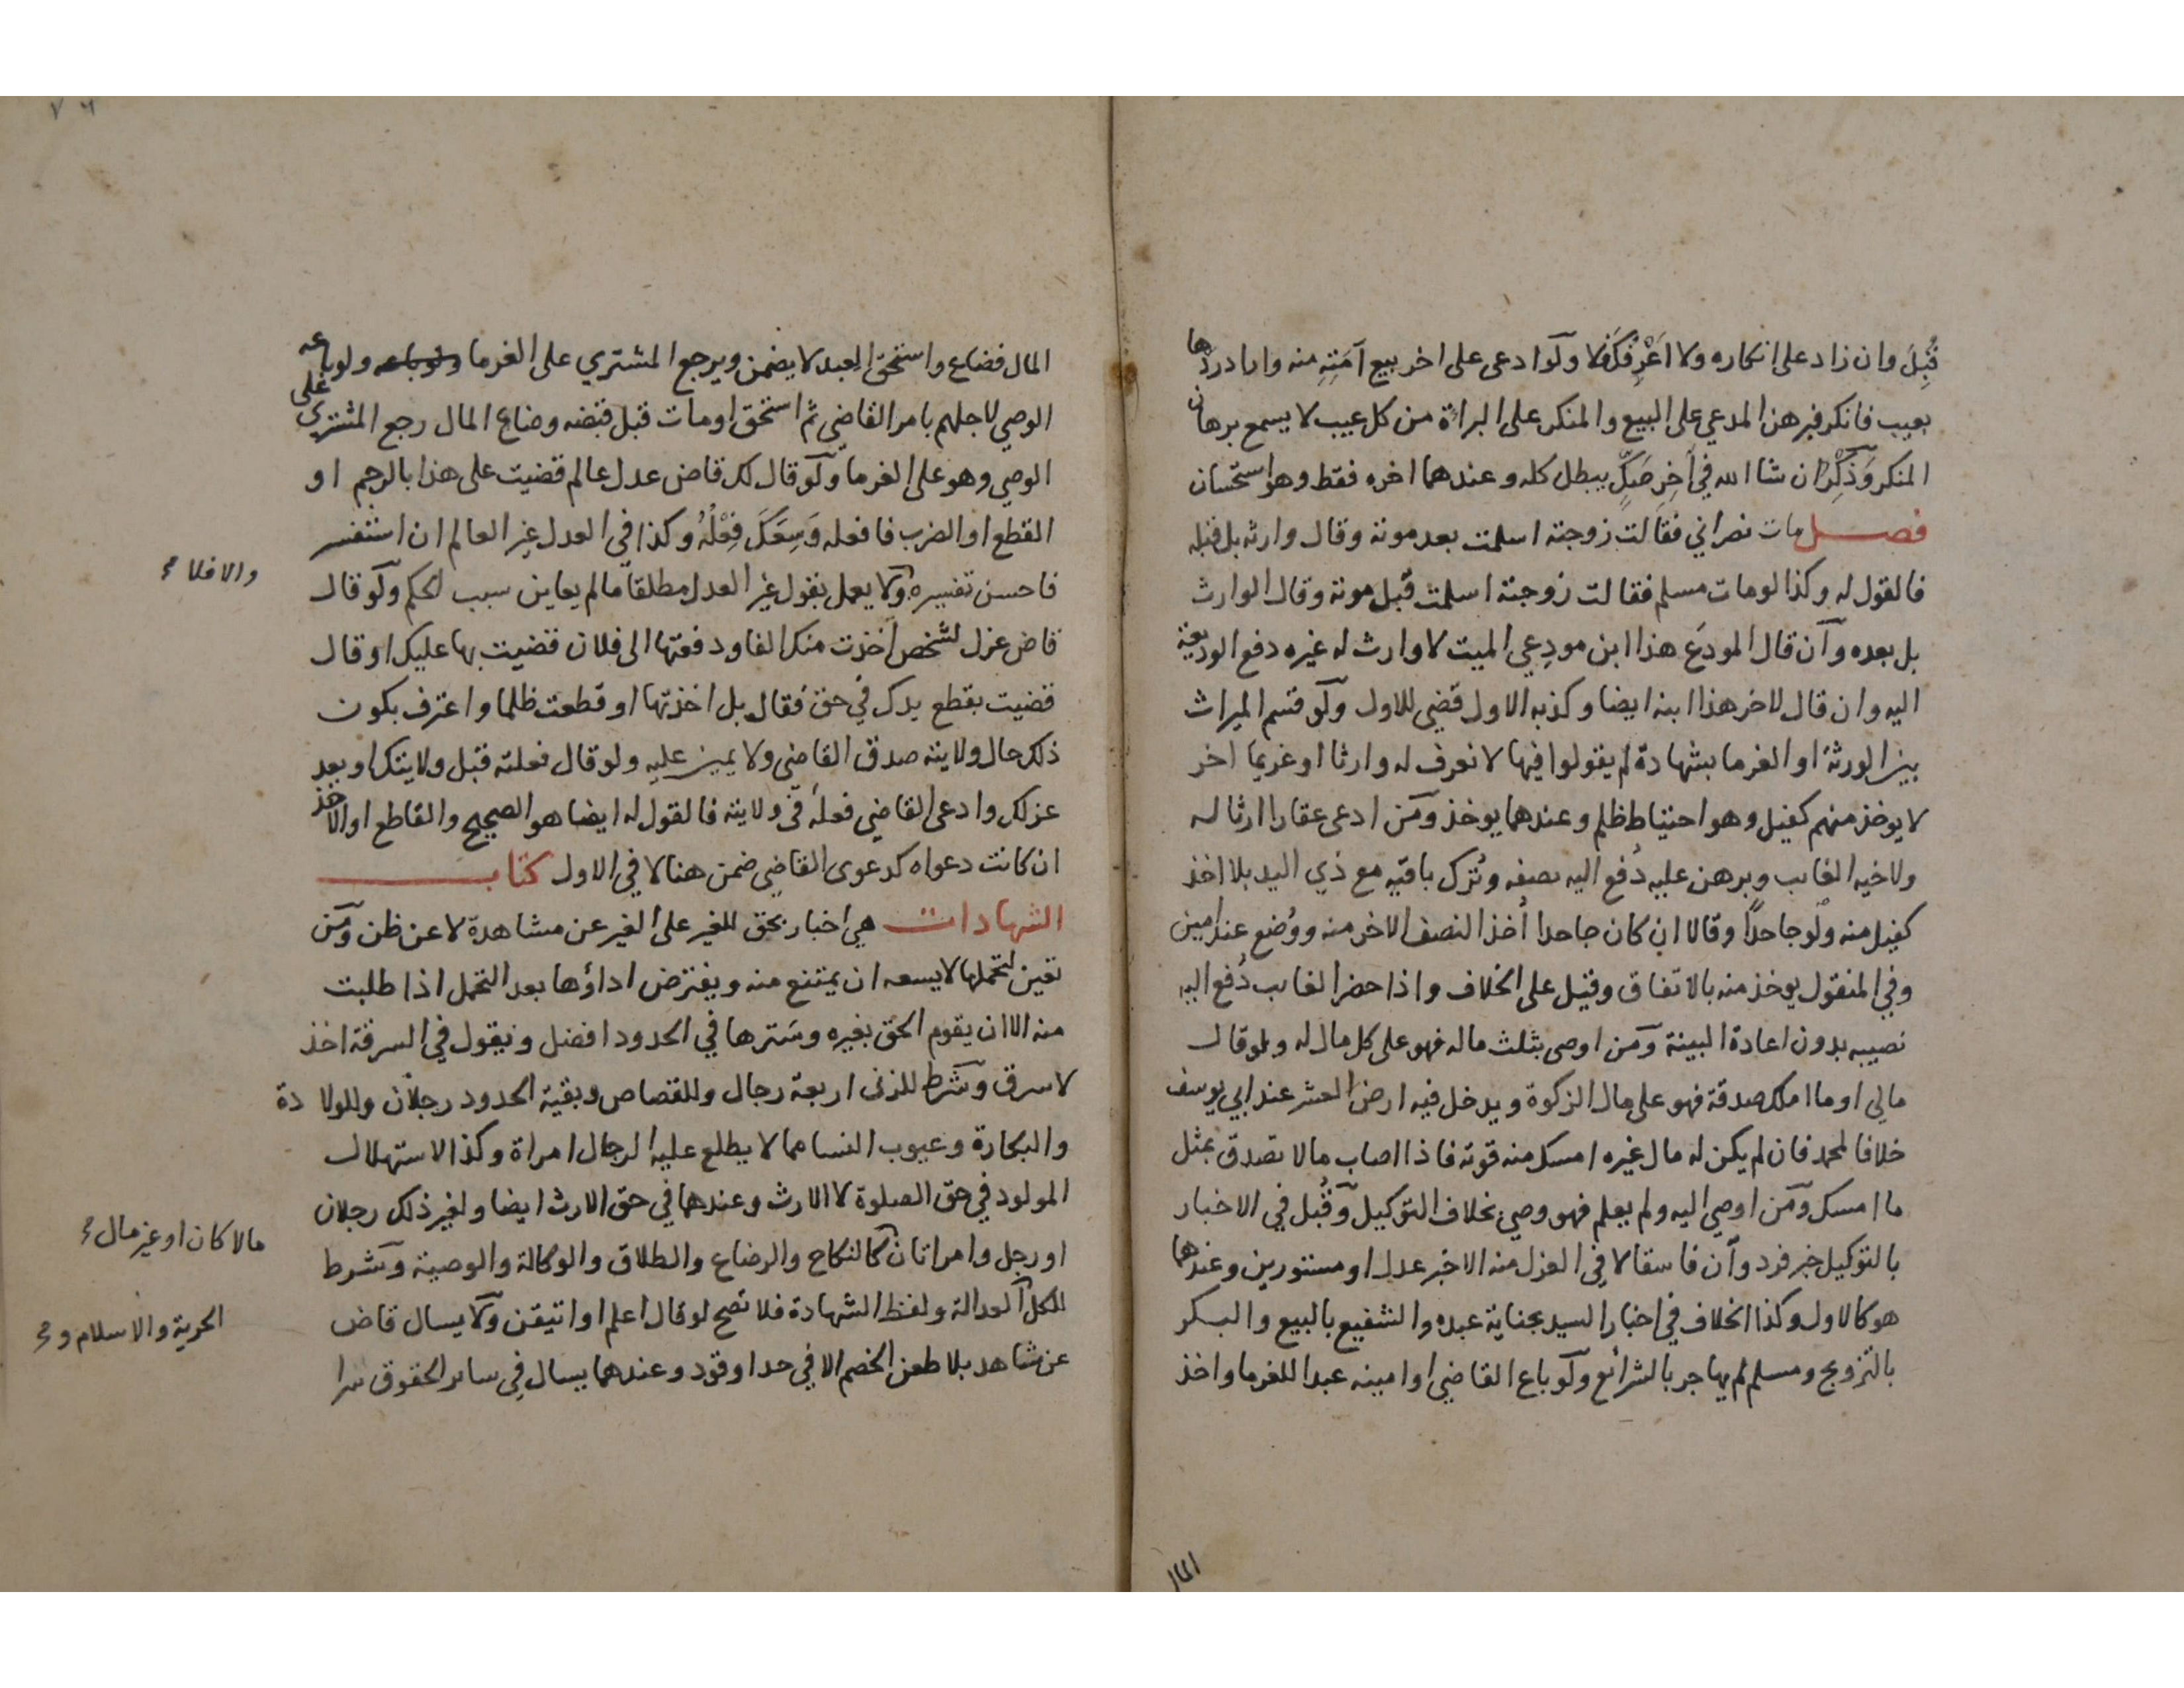 قُبِلَ وان زاد على انكاره ولا اَعْرِفُكَ فلا ولو ادعى على اخر بيع اَمَتِهِ منه واراد ردها
بعيب فانكر فبرهن المدعي على البيع والمنكر على البراة من كل عيب لا يسمع برهان
المنكر وَذِكْرُ ان شا الله في اَخِرِ صَكٍّ يبطل كله وعندهما اخره فقط وهو استحسان
فصل مات نصراني فقالت زوجته اسلمت بعد موته وقال وارثه بل قبله
فالقول له وكذا لو مات مسلم فقالت زوجته اسلمت قبل موته وقال الوارث
بل بعده وان قال المودَع هذا ابن مودِعي الميت لا وارث له غيره دفع الوديعة
اليه وان قال لاخر هذا ابنه ايضا وكذبه الاول قضي للاول ولو قسم الميراث
بين الورثة او الغرما بشهادة لم يقولوا فيها لا نعرف له وارثا او غريما اخر
لا يوخذ منهم كفيل وهو احتياط ظلم وعندهما يوخذ ومن ادعى عقارا ارثا له
ولاخيه الغايب وبرهن عليه دُفع اليه نصفه وتُرك باقيه مع ذي اليد بلا اخذ
كفيل منه ولو جاحدًا وقالا ان كان جاحدا اُخذ النصف الاخر منه ووُضع عند امين
وفي المنقول يوخذ منه بالاتفاق وقيل على الخلاف واذا حضر الغايب دُفع اليه
نصيبه بدون اعادة البينة ومن اوصى بثلث ماله فهو على كل مال له ولو قال
مالي او ما املك صدقة فهو على مال الزكوة ويدخل فيه ارض العشر عند ابي يوسف
خلافا لمحمد فان لم يكن له مال غيره امسك منه قوته فاذا اصاب مالا تصدق بمثل
ما امسك ومن اوصي اليه ولم يعلم فهو وصي بخلاف التوكيل وقُبل في الاخبار
بالتوكيل خبر فرد وان فاسقا لا في العزل منه الا خبر عدل او مستورين وعندهما
هو كالاول وكذا الخلاف في اخبار السيد بجناية عبده والشفيع بالبيع والبكر
بالتزويج ومسلم لم يهاجر بالشرائع ولو باع القاضي او امينه عبدا للغرما واخذ
المال
المال فضاع واستحق العبد لا يضمن ويرجع المشتري على الغرما ولو باعه ولو باعه
الوصي لاجلهم بامر القاضي ثم استحق او مات قبل قبضه وضاع المال رجع المشتري على
الوصي وهو على الغرما ولو قال لك قاض عدل عالم قضيت على هذا بالرجم او
القطع او الضرب فافعله وَسِعَكَ فِعْلُهُ وكذا في العدل غير العالم ان استفسر
فاحسن تفسيره ولا يعمل بقول غير العدل مطلقا ما لم يعاين سبب الحكم ولو قال
والا فلا
قاض عزل لشخص اخذت منك الفا ودفعتها الى فلان قضيت بها عليك او قال
قضيت بقطع يدك في حق فقال بل اخذتها او قطعت ظلما واعترف بكون
ذلك حال ولايته صدق القاضي ولا يمين عليه ولو قال فعلته قبل ولايتك او بعد
عزلك وادعى القاضي فعله في ولايته فالقول له ايضا هو الصحيح والقاطع او الاخذ
ان كانت دعواه كدعوى القاضي ضمن هنا لا في الاول كتاب
الشهادات هي اخبار بحق للغير على الغير عن مشاهدة لا عن ظن ومن
تعين لتحملها لا يسعه ان يمتنع منه ويفترض اداؤها بعد التحمل اذا طلبت
منه الا ان يقوم الحق بغيره وسَترها في الحدود افضل ويقول في السرقة اخذ
لا سرق وشرط للزنى اربعة رجال وللقصاص وبقية الحدود رجلان وللولادة
والبكارة وعيوب النسا مما لا يطلع عليه الرجال امراة وكذا الاستهلال
المولود في حق الصلوة لا الارث وعندهما في حق الارث ايضا ولغير ذلك رجلان
مالا كان او غير مال
او رجل وامراتان كالنكاح والرضاع والطلاق والوكالة والوصية وشرط
للكل العدالة ولفظ الشهادة فلا تصح لو قال اعلم او اتيقن ولا يسال قاض
الحرية والاسلام و
عن شاهد بلا طعن الخصم الا في حد او قود وعندهما يسال في ساير الحقوق سرا